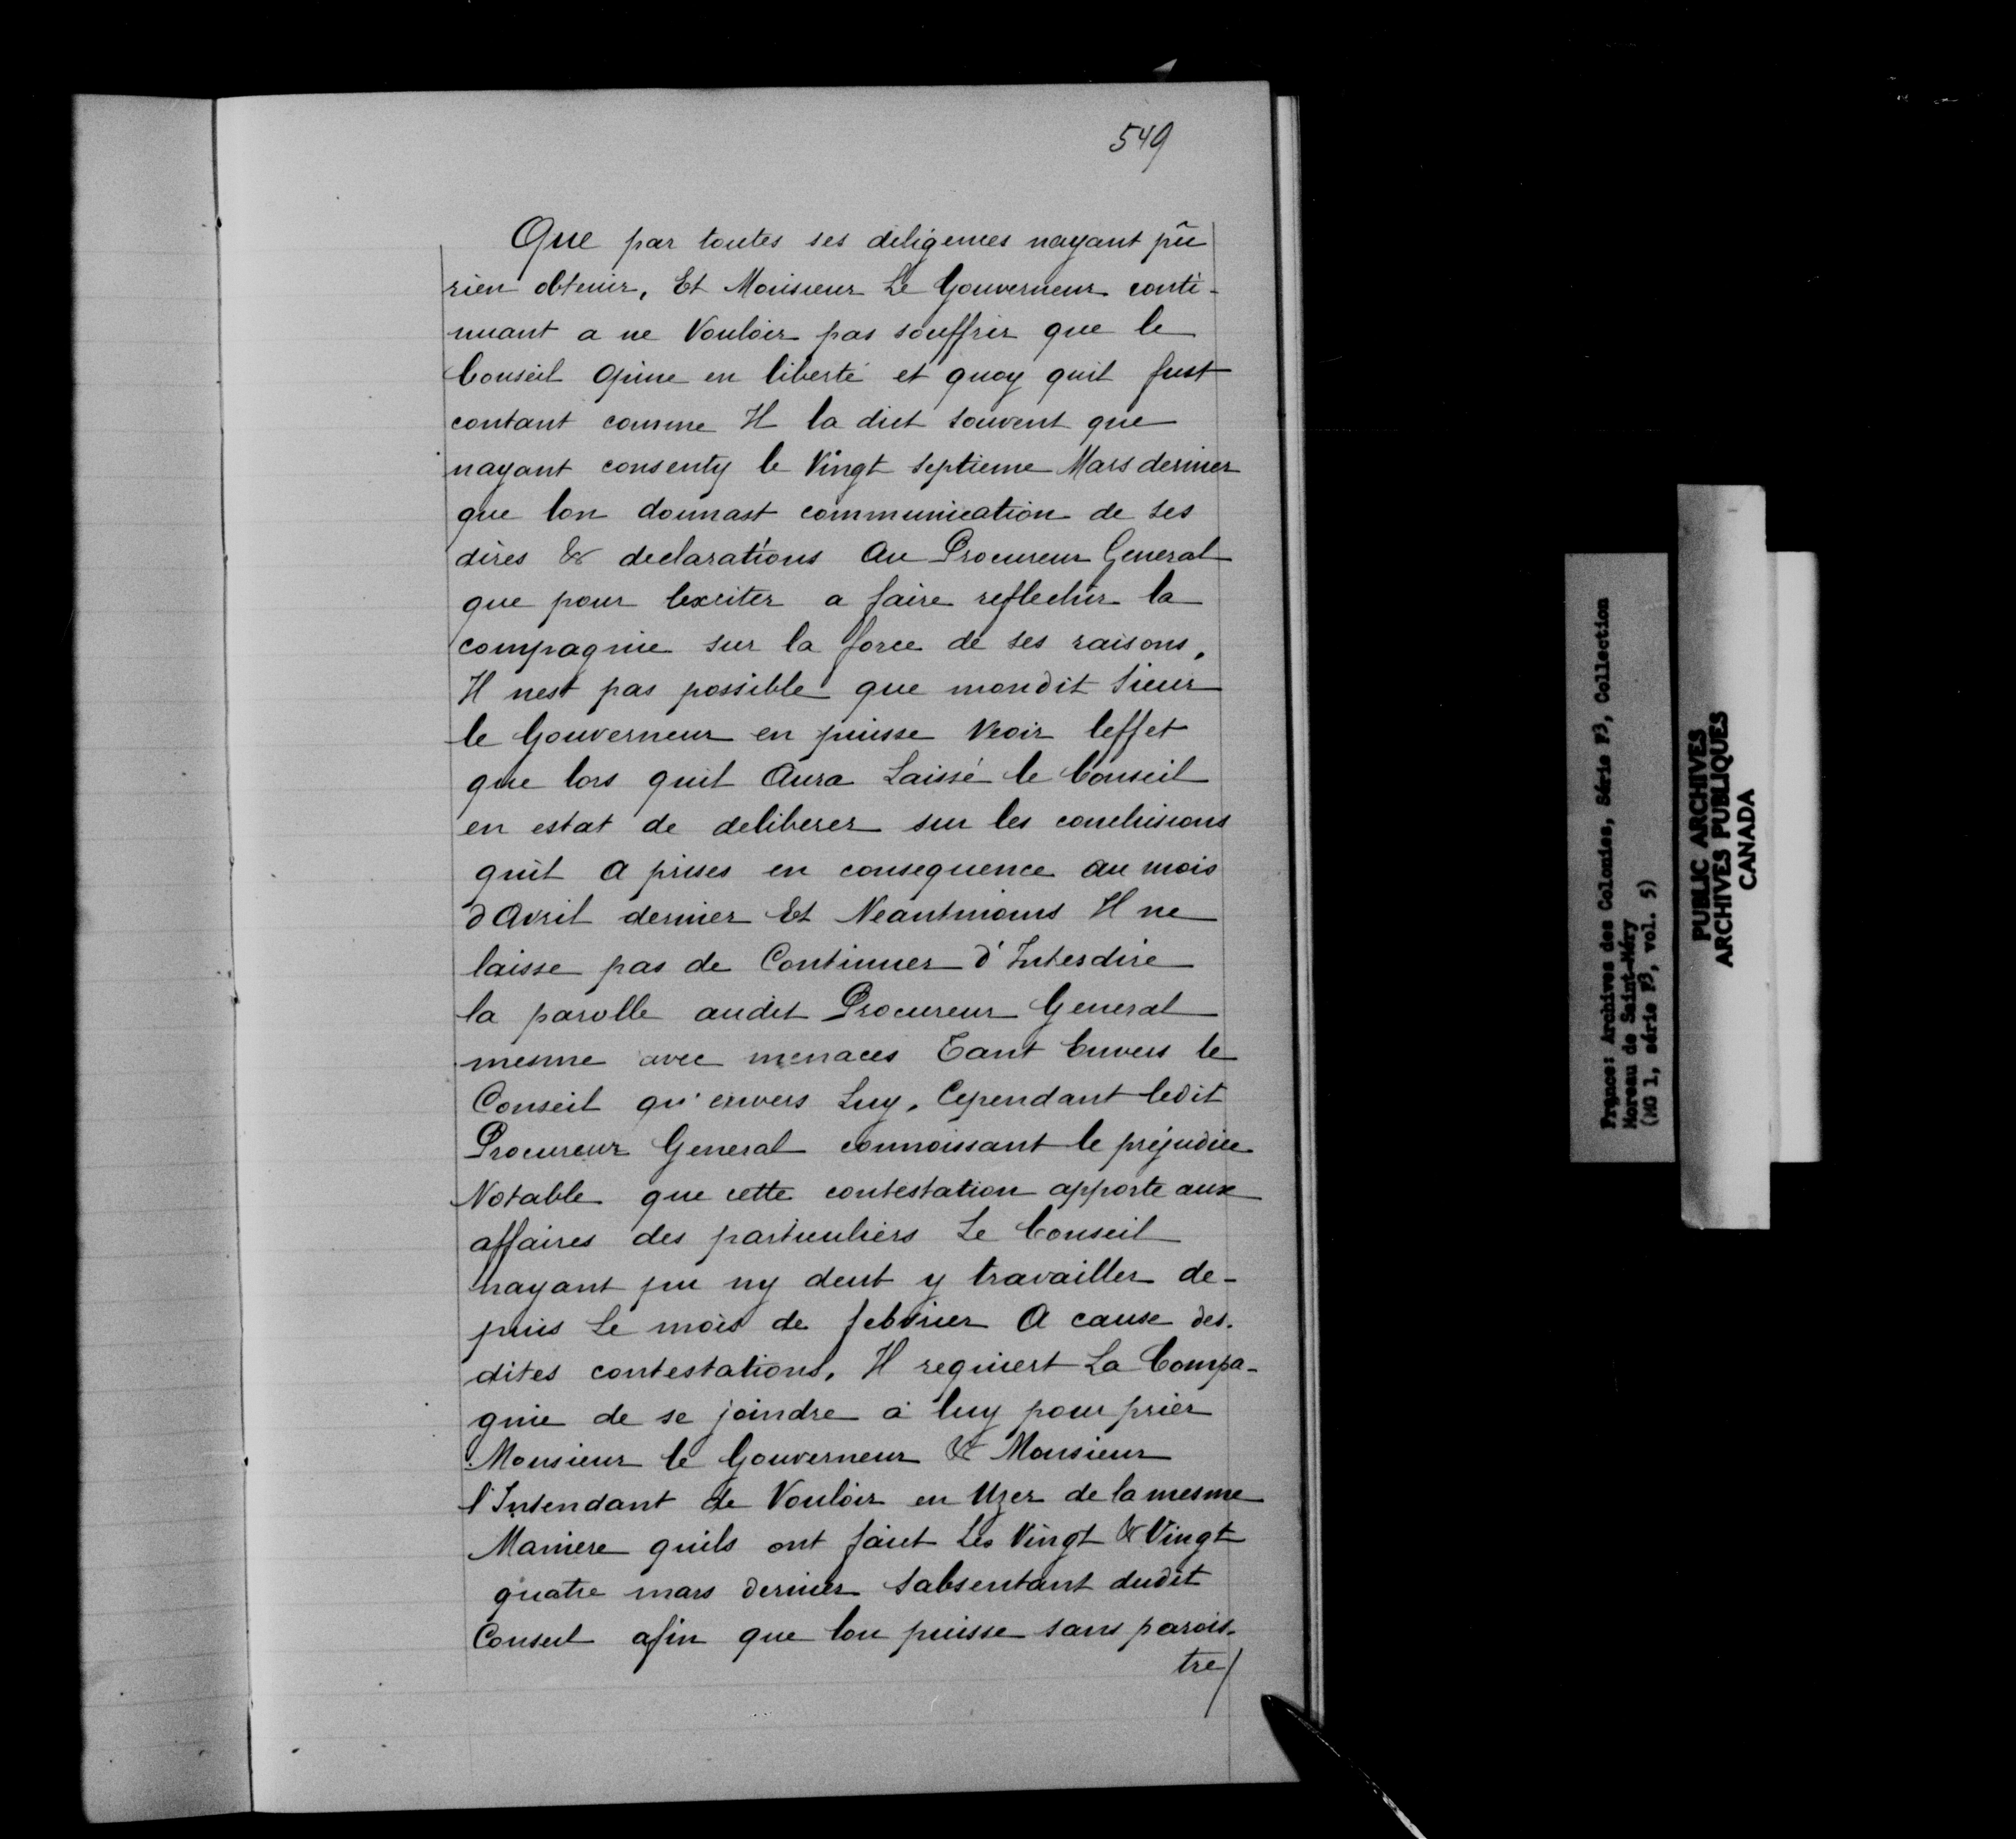 549
Que par toutes ses diligences nayant pû
rien obtenir, Et Monsieur Le Gouverneur conti-
nuant a ne Vouloir pas souffrir que le
Conseil Opine en liberté et quoy quil fust
contant comme Il la dict souvent que
nayant consenty le Vingt septieme Mars dernier
que lon donnast communication de ses
dires & declarations Au Procureur General
que pour lexciter a faire reflechir la
compagnie sur la force de ses raisons,
Il nest pas possible que mondit Sieur
le Gouverneur en puisse Veoir leffet
que lors quil Aura Laissé le Conseil
en estat de deliberer sur les conclusions
quil a prises en consequence au mois
d'Avril dernier Et Neantmoins Il ne
laisse pas de Continuer d'Interdire
la parolle audit Procureur General
mesme avec menaces Tant Envers le
Conseil qu'envers Luy, Cependant ledit
Procureur General connoissant le préjudice
Notable que cette contestation apporte aux
affaires des particuliers Le Conseil
nayant pu ny deut y travailler de-
puis Le mois de febvrier A cause des-
dites contestations, Il requiert La Compa-
gnie de se joindre à luy pour prier
Monsieur le Gouverneur & Monsieur
l'Intendant de Vouloir en Uzer de la mesme
Maniere quils ont faict Les Vingt & Vingt
quatre mars dernier sabsentant dudit
Conseil afin que lon puisse sans parois-
tre/
France: Archives des Colonies, Série F3, Collection
Moreau de Saint-Méry
(MG 1, série F3, vol. 5)
PUBLIC ARCHIVES
ARCHIVES PUBLIQUES
CANADA